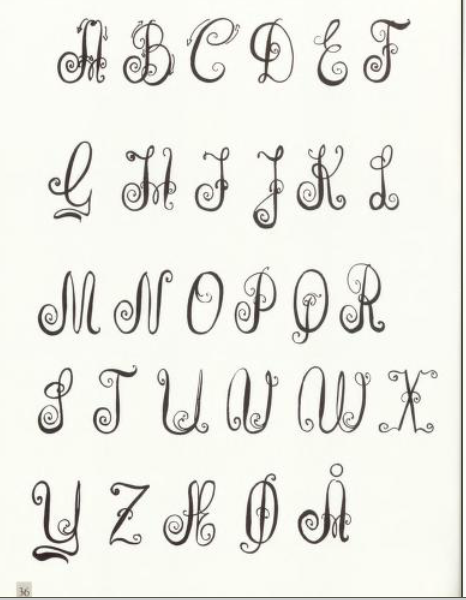 A B C D E F
G H I J K L
M N O P Q R
S T U V W X
Y Z Æ Ø Å
36